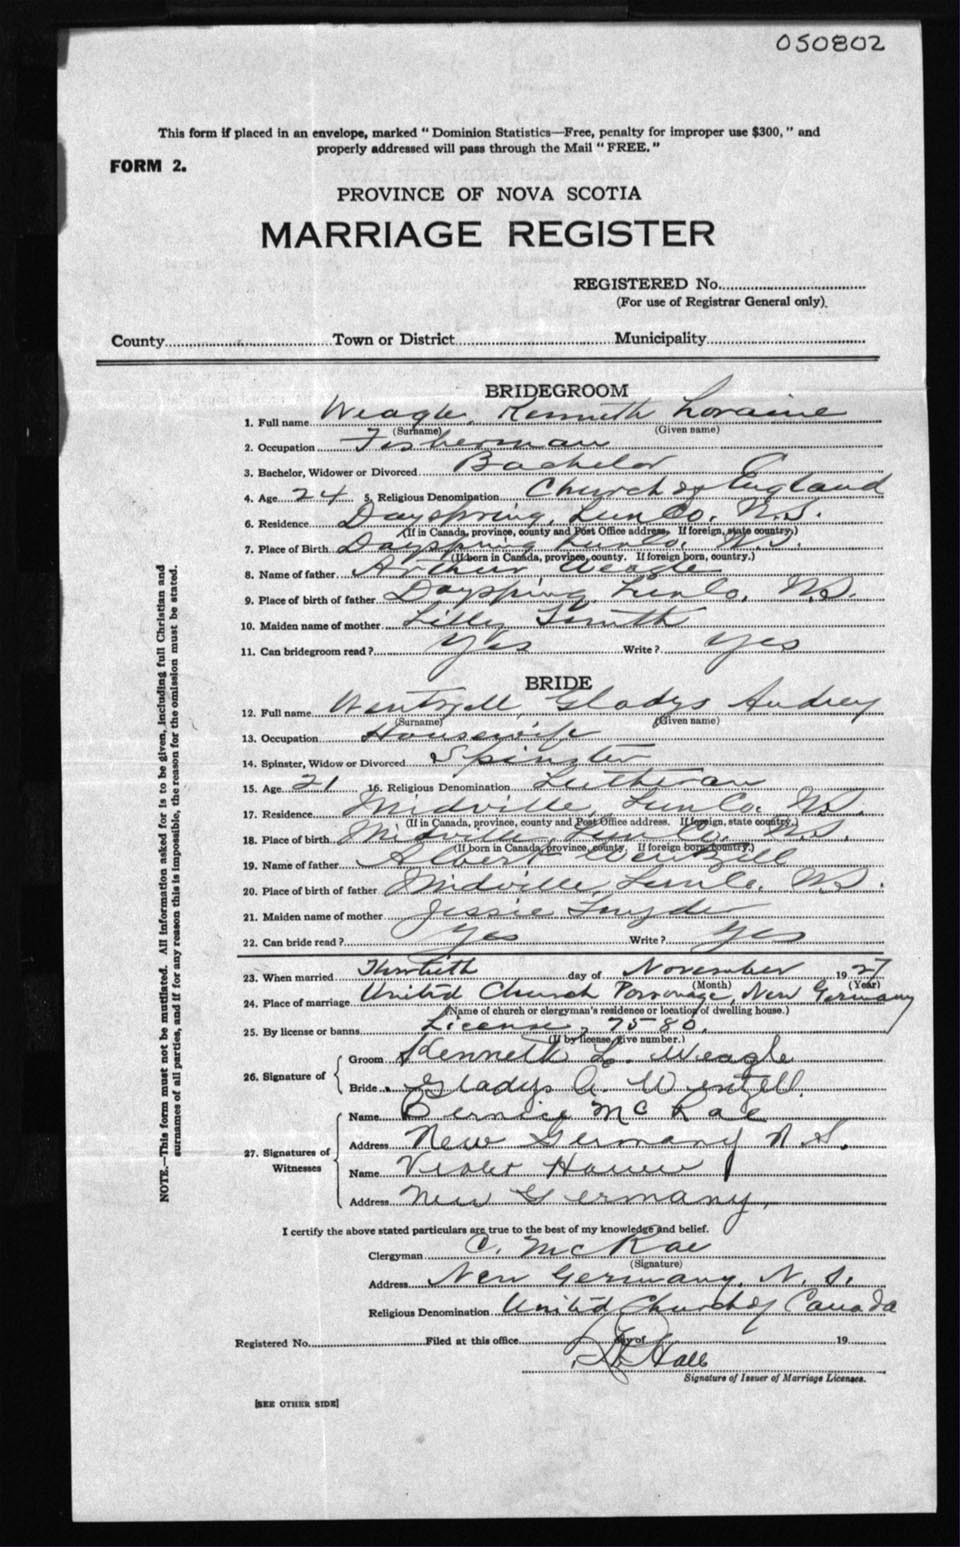 050802
This form if placed in an envelope, marked "Dominion Statistics—Free, penalty for improper use $300," and
properly addressed will pass through the Mail "FREE."
FORM 2.
PROVINCE OF NOVA SCOTIA
MARRIAGE REGISTER
REGISTERED No.
(For use of Registrar General only).
County Town or District Municipality
BRIDEGROOM
1. Full name Weagle, Kenneth Loraine
(Surname) (Given name)
2. Occupation Fisherman
3. Bachelor, Widower or Divorced Bachelor
4. Age 24 5. Religious Denomination Church of England
6. Residence Dayspring, Lun Co. N.S.
(If in Canada, province, county and Post Office address. If foreign, state country.)
7. Place of Birth Dayspring Lun Co. N.S.
(If born in Canada, province, county. If foreign born, country.)
8. Name of father Arthur Weagle
9. Place of birth of father Dayspring, Lun Co. N.S.
10. Maiden name of mother Lilly Smith
11. Can bridegroom read? Yes Write? Yes
BRIDE
12. Full name Wentzell, Gladys Audrey
(Surname) (Given name)
13. Occupation Housewife
14. Spinster, Widow or Divorced Spinster
15. Age 21 16. Religious Denomination Lutheran
17. Residence Midville, Lun Co. N.S.
(If in Canada, province, county and Post Office address. If foreign, state country.)
18. Place of birth Midville, Lun Co. N.S.
(If born in Canada, province, county. If foreign born, country.)
19. Name of father Albert Wentzell
20. Place of birth of father Midville, Lun Co. N.S.
21. Maiden name of mother Jessie Snyder
22. Can bride read? Yes Write? Yes
23. When married Thirtieth day of November 1927
(Month) (Year)
24. Place of marriage United Church Parsonage, New Germany
(Name of church or clergyman's residence or location of dwelling house.)
25. By license or banns License, 7580.
(If by license, give number.)
26. Signature of
Groom Kenneth L. Weagle
Bride Gladys A. Wentzell.
27. Signatures of Witnesses
Name Bernice McRae
Address New Germany N.S.
Name Violet
Address New Germany,
I certify the above stated particulars are true to the best of my knowledge and belief.
Clergyman C. McRae
(Signature)
Address New Germany, N.S.
Religious Denomination United Church of Canada
Registered No. Filed at this office day of 19
Hall
Signature of Issuer of Marriage Licenses.
[SEE OTHER SIDE]
NOTE.—This form must not be mutilated. All information asked for is to be given, including full Christian and
surnames of all parties, and if for any reason this is impossible, the reason for the omission must be stated.